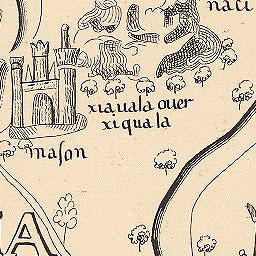 naci
xiaquala over
xiquala
mason
A